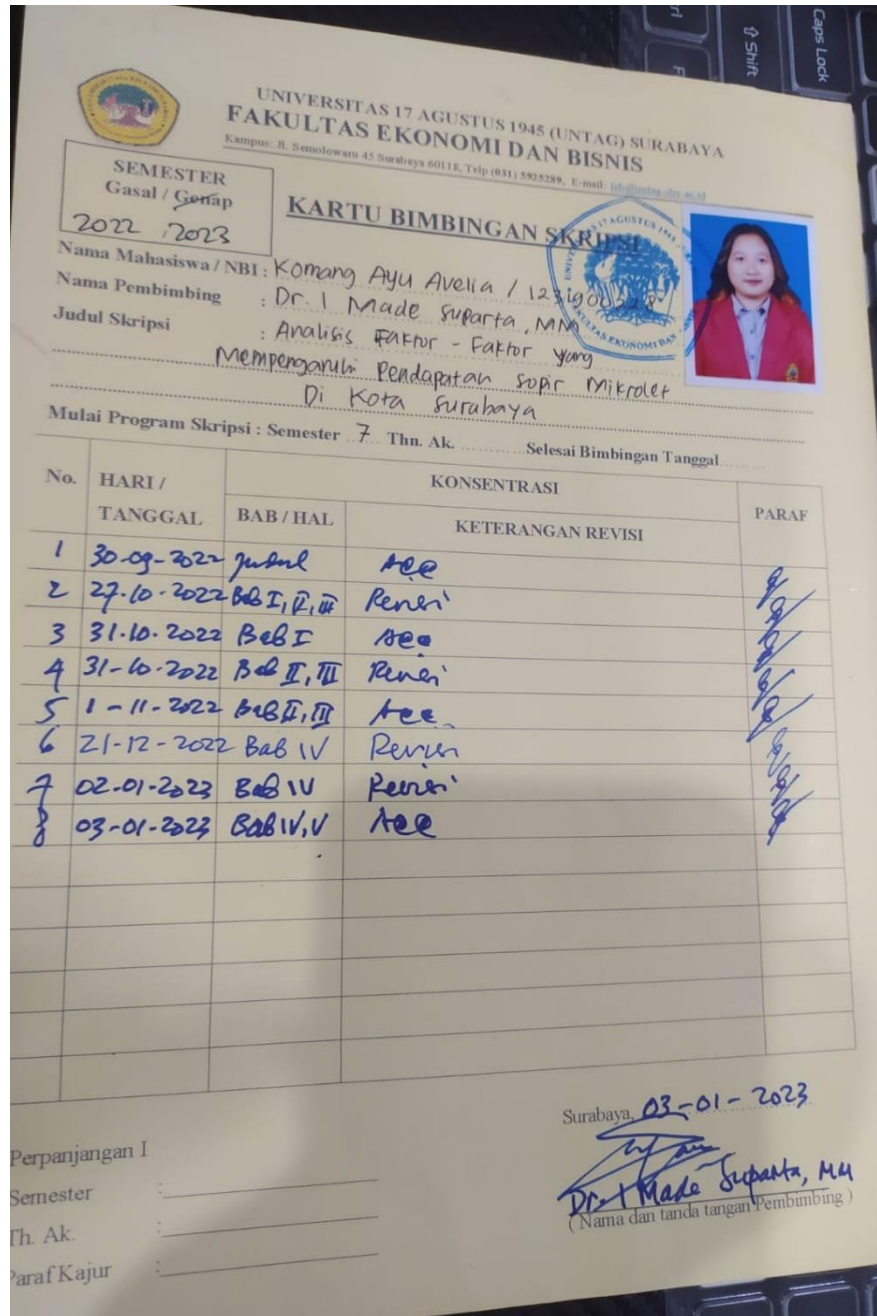 Caps Lock
Shift
UNIVERSITAS 17 AGUSTUS 1945 (UNTAG) SURABAYA
FAKULTAS EKONOMI DAN BISNIS
Kampus: Jl. Semolowaru 45 Surabaya 60118, Telp (031) 5925289, E-mail:
SEMESTER
Gasal / Genap
2022 / 2023
KARTU BIMBINGAN SKRIPSI
Nama Mahasiswa / NBI : Komang Ayu Avelia /
Nama Pembimbing : Dr. I Made Suparta, MM
Judul Skripsi : Analisis Faktor - Faktor yang
Mempengaruhi Pendapatan Sopir Mikrolet
Di Kota Surabaya
Mulai Program Skripsi : Semester 7 Thn. Ak. Selesai Bimbingan Tanggal
No. HARI / TANGGAL KONSENTRASI PARAF
BAB / HAL KETERANGAN REVISI
1 30-09-2022 Judul Acc
2 27-10-2022 Bab I, II, III Revisi
3 31.10.2022 Bab I Acc
4 31-10-2022 Bab II, III Revisi
5 1-11-2022 Bab II, III Acc
6 21-12-2022 Bab IV Revisi
7 02-01-2023 Bab IV Revisi
8 03-01-2023 Bab IV, V Acc
Surabaya, 03-01-2023
Dr. I Made Suparta, MM
(Nama dan tanda tangan Pembimbing)
Perpanjangan I
Semester :
Th. Ak. :
Paraf Kajur :